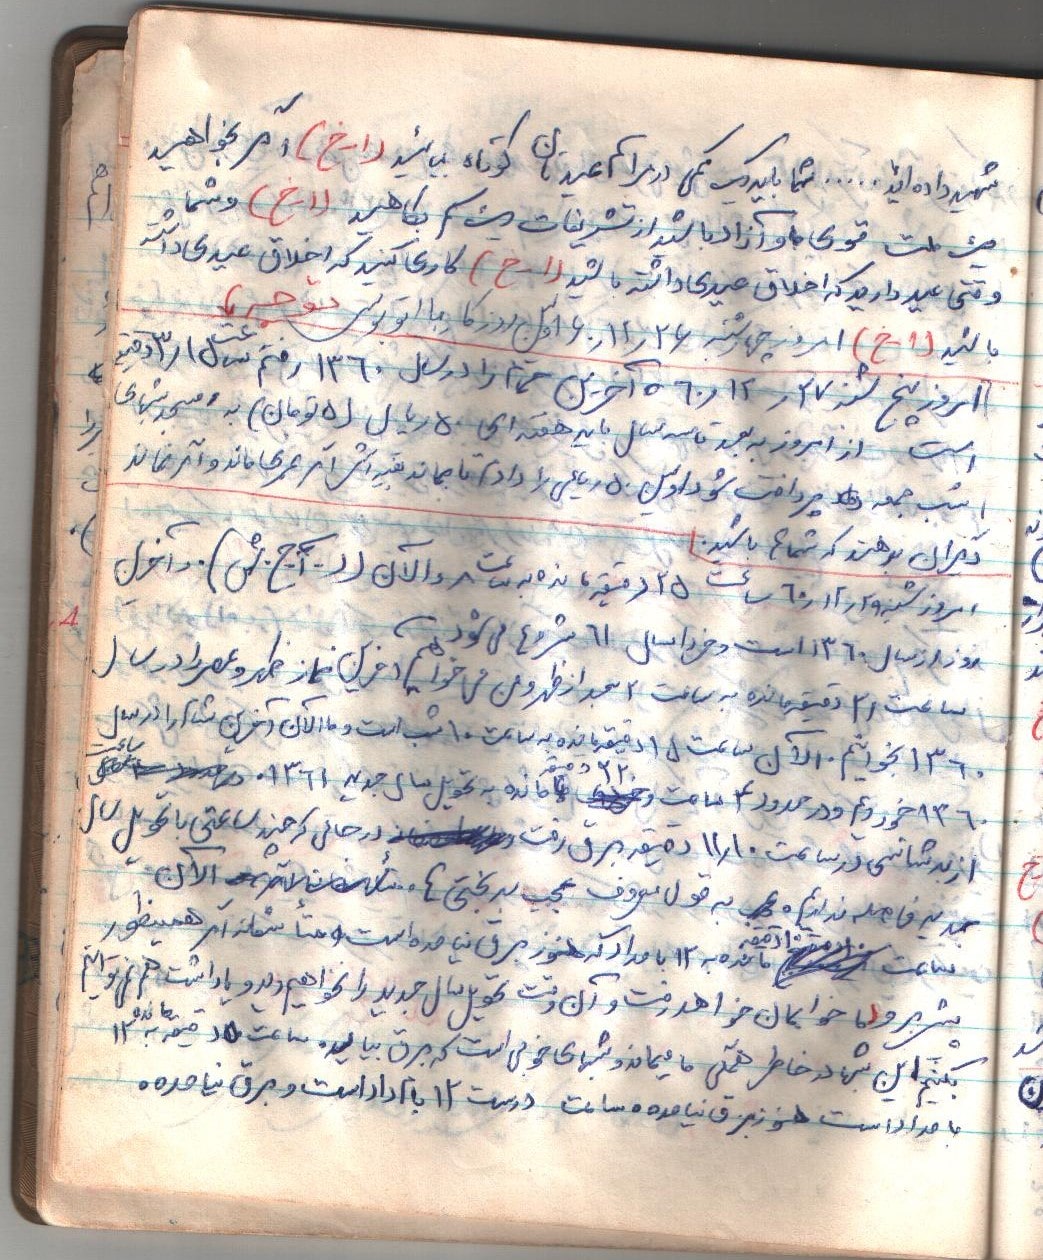 شهید داده‌اید ..... شما باید یک کمی در مراسم عیدتان کوتاه بیائید (ا-خ) اگر بخواهید
ملت قوی و آزاد باشد از تشریفات کم بکاهید (ا-خ) و شما
وقتی عید دارید که اخلاق عیدی داشته باشید (ا-خ) کاری کنید که اخلاق عیدی داشته
باشید (ا-خ) امروز چهارشنبه ۲۶ر۱۲ر۶۰ اولین روز کار با اتوبوس
توجه
امروز پنج شنبه ۲۷ر۱۲ر۶۰ آخرین حمام را در سال ۱۳۶۰ رفتم ساعت ۳ر۱۵ دقیقه
است از امروز به بعد تا سه سال باید هفته‌ای ۵۰ ریال (۵ تومان) به مسجد شبهای
شب جمعه پرداخت شود اولین ۵۰ ریالی را دادم تا بماند بقیه‌اش اگر عمری ماند و اگر نماند
دیگران بدهند که شماها باشید.
امروز شنبه ۲۹ر۱۲ر۶۰ ساعت ۲۵ دقیقه مانده به ساعت ۸ والآن آخرین
روز از سال ۱۳۶۰ است و فردا سال ۶۱ شروع می‌شود
ساعت ۲۱ دقیقه مانده به ساعت ۲ بعد از ظهر و من می‌خواهم آخرین نماز ظهر و عصر را در سال
۱۳۶۰ بخوانم. الآن ساعت ۱۵ دقیقه مانده به ساعت ۱۰ شب است و ما الآن آخرین شام را در سال
۱۳۶۰ خوردیم و در حدود ۴ ساعت و ۲۲ دقیقه مانده به تحویل سال جدید ۱۳۶۱. ساعت
از بدشانسی در ساعت ۱۰ر۱۱ دقیقه برق رفت در حالی که چند ساعتی با تحویل سال
جدید فاصله نداریم به قول معروف عجب بدبختی الآن
ساعت ۱۰ دقیقه مانده به ۱۲ بامداد که هنوز برق نیامده است و متأسفانه اگر همینطور
پیش برود ما خوابمان خواهد رفت و آن وقت تحویل سال جدید را نخواهیم دید و یادداشت هم نمی‌توانیم
بکنیم این شبها در خاطر همگی ما میماند و شبهای خوبی است که برق بیاید ساعت ۵ دقیقه مانده به ۱۲
بامداد است هنوز برق نیامده ساعت درست ۱۲ بامداد است و برق نیامده